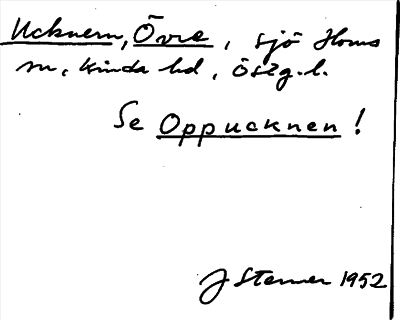 Ucknern, Övre, sjö Horns
sn, Kinda hd, Östg.l.
Se Oppucknen!
J Sterner 1952